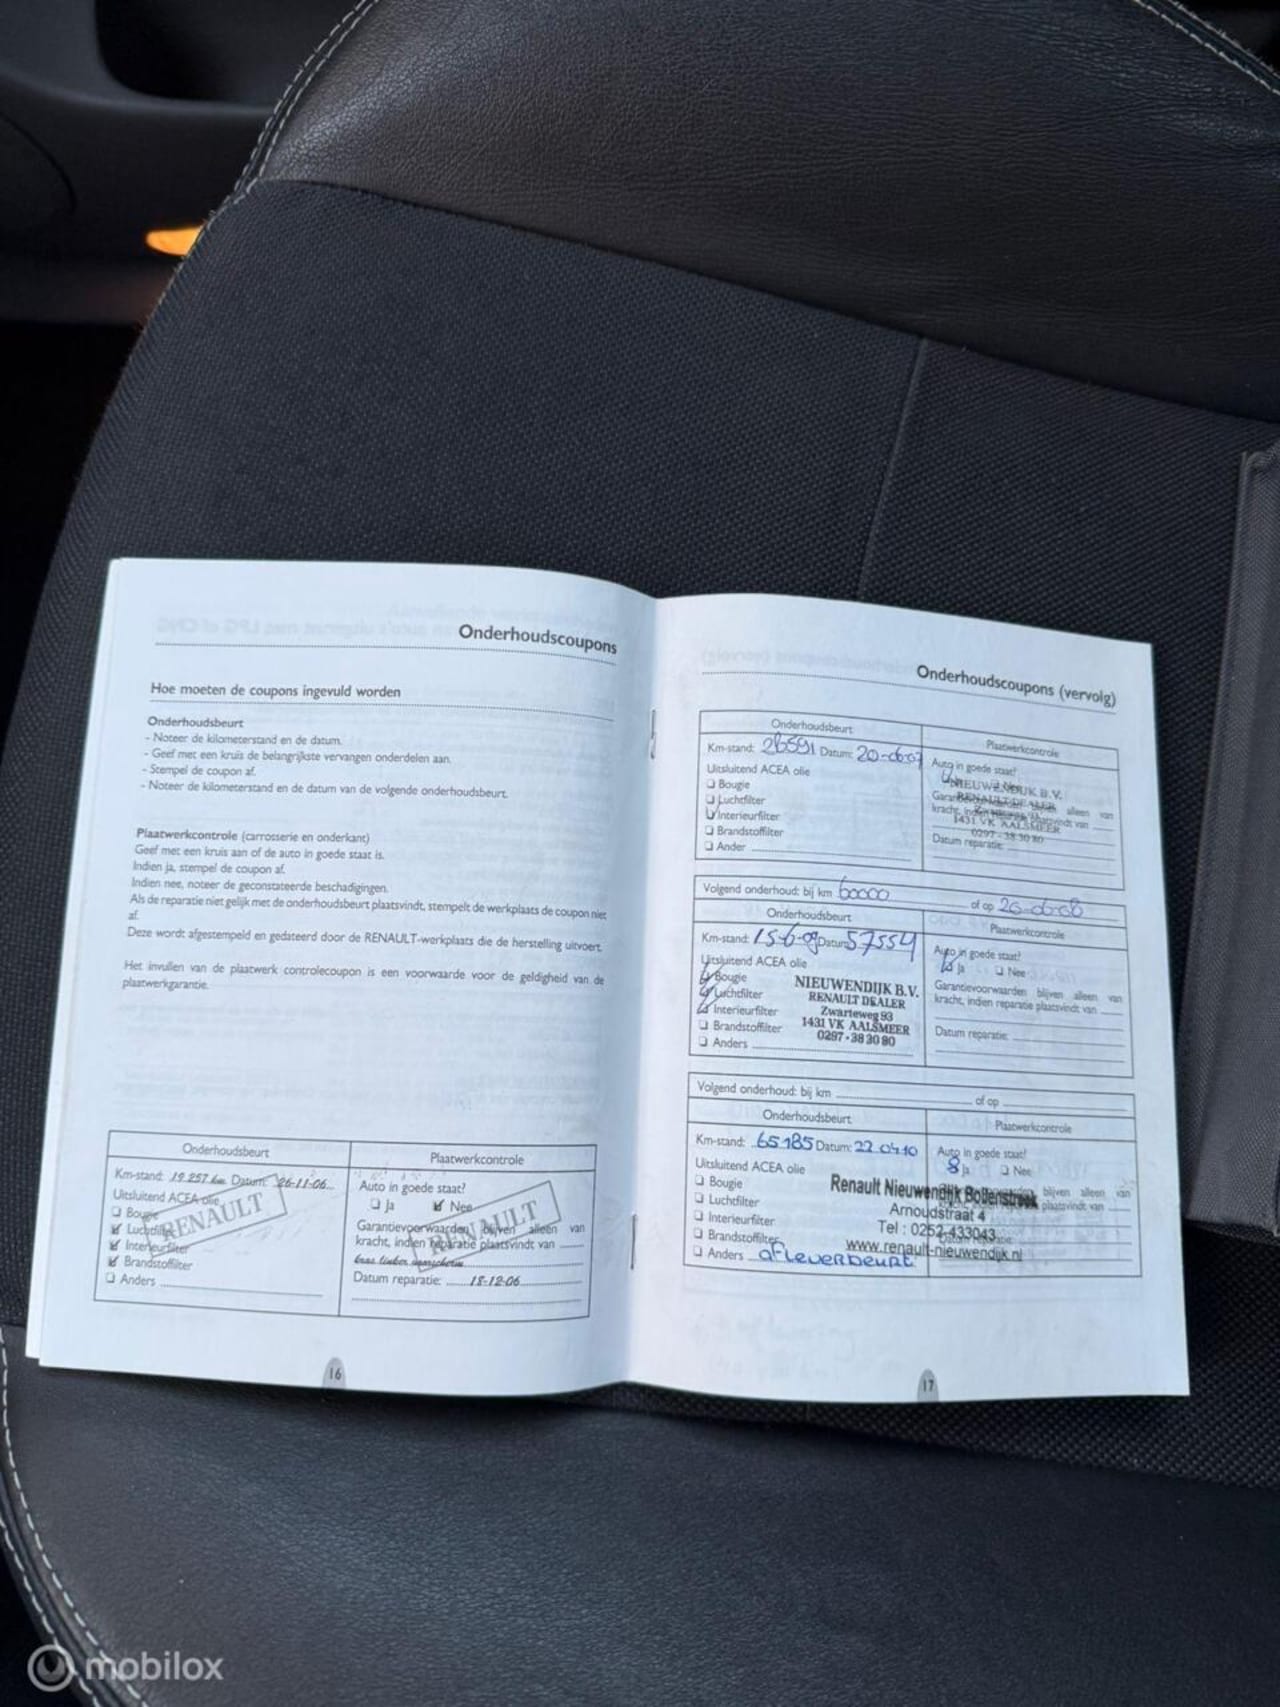 Onderhoudscoupons
Hoe moeten de coupons ingevuld worden
Onderhoudsbeurt
- Noteer de kilometerstand en de datum.
- Geef met een kruis de belangrijkste vervangen onderdelen aan.
- Stempel de coupon af.
- Noteer de kilometerstand en de datum van de volgende onderhoudsbeurt.
Plaatwerkcontrole (carrosserie en onderkant)
Geef met een kruis aan of de auto in goede staat is.
Indien ja, stempel de coupon af.
Indien nee, noteer de geconstateerde beschadigingen.
Als de reparatie niet gelijk met de onderhoudsbeurt plaatsvindt, stempelt de werkplaats de coupon niet
af.
Deze wordt afgestempeld en gedateerd door de RENAULT-werkplaats die de herstelling uitvoert.
Het invullen van de plaatwerk controlecoupon is een voorwaarde voor de geldigheid van de
plaatwerkgarantie.
Onderhoudsbeurt
Km-stand: 19.257 km Datum: 26-11-06
Uitsluitend ACEA olie
Bougie
Luchtfilter
Interieurfilter
Brandstoffilter
Anders
RENAULT
Plaatwerkcontrole
Auto in goede staat?
Ja Nee
Garantievoorwaarden blijven alleen van
kracht, indien reparatie plaatsvindt van
kras linker voorscherm
Datum reparatie: 18-12-06
RENAULT
16
Onderhoudscoupons (vervolg)
Onderhoudsbeurt
Km-stand: 26591 Datum: 20-06-07
Uitsluitend ACEA olie
Bougie
Luchtfilter
Interieurfilter
Brandstoffilter
Ander
Plaatwerkcontrole
Auto in goede staat?
NIEUWENDIJK B.V.
RENAULT DEALER
1431 VK AALSMEER
0297 - 38 30 80
Datum reparatie:
Volgend onderhoud: bij km 60000 of op 20-06-08
Onderhoudsbeurt
Km-stand: 15-6-09 Datum: 57554
Uitsluitend ACEA olie
Bougie
Luchtfilter
Interieurfilter
Brandstoffilter
Anders
NIEUWENDIJK B.V.
RENAULT DEALER
Zwarteweg 93
1431 VK AALSMEER
0297 - 38 30 80
Plaatwerkcontrole
Auto in goede staat?
Ja Nee
Garantievoorwaarden blijven alleen van
kracht, indien reparatie plaatsvindt van
Datum reparatie:
Volgend onderhoud: bij km of op
Onderhoudsbeurt
Km-stand: 65185 Datum: 22 04 10
Uitsluitend ACEA olie
Bougie
Luchtfilter
Interieurfilter
Brandstoffilter
Anders afleverbeurt
Plaatwerkcontrole
Auto in goede staat?
Ja Nee
blijven alleen van
plaatsvindt van
Renault Nieuwendijk Bollenstreek
Arnoudstraat 4
Tel : 0252-433043
www.renault-nieuwendijk.nl
17
mobilox